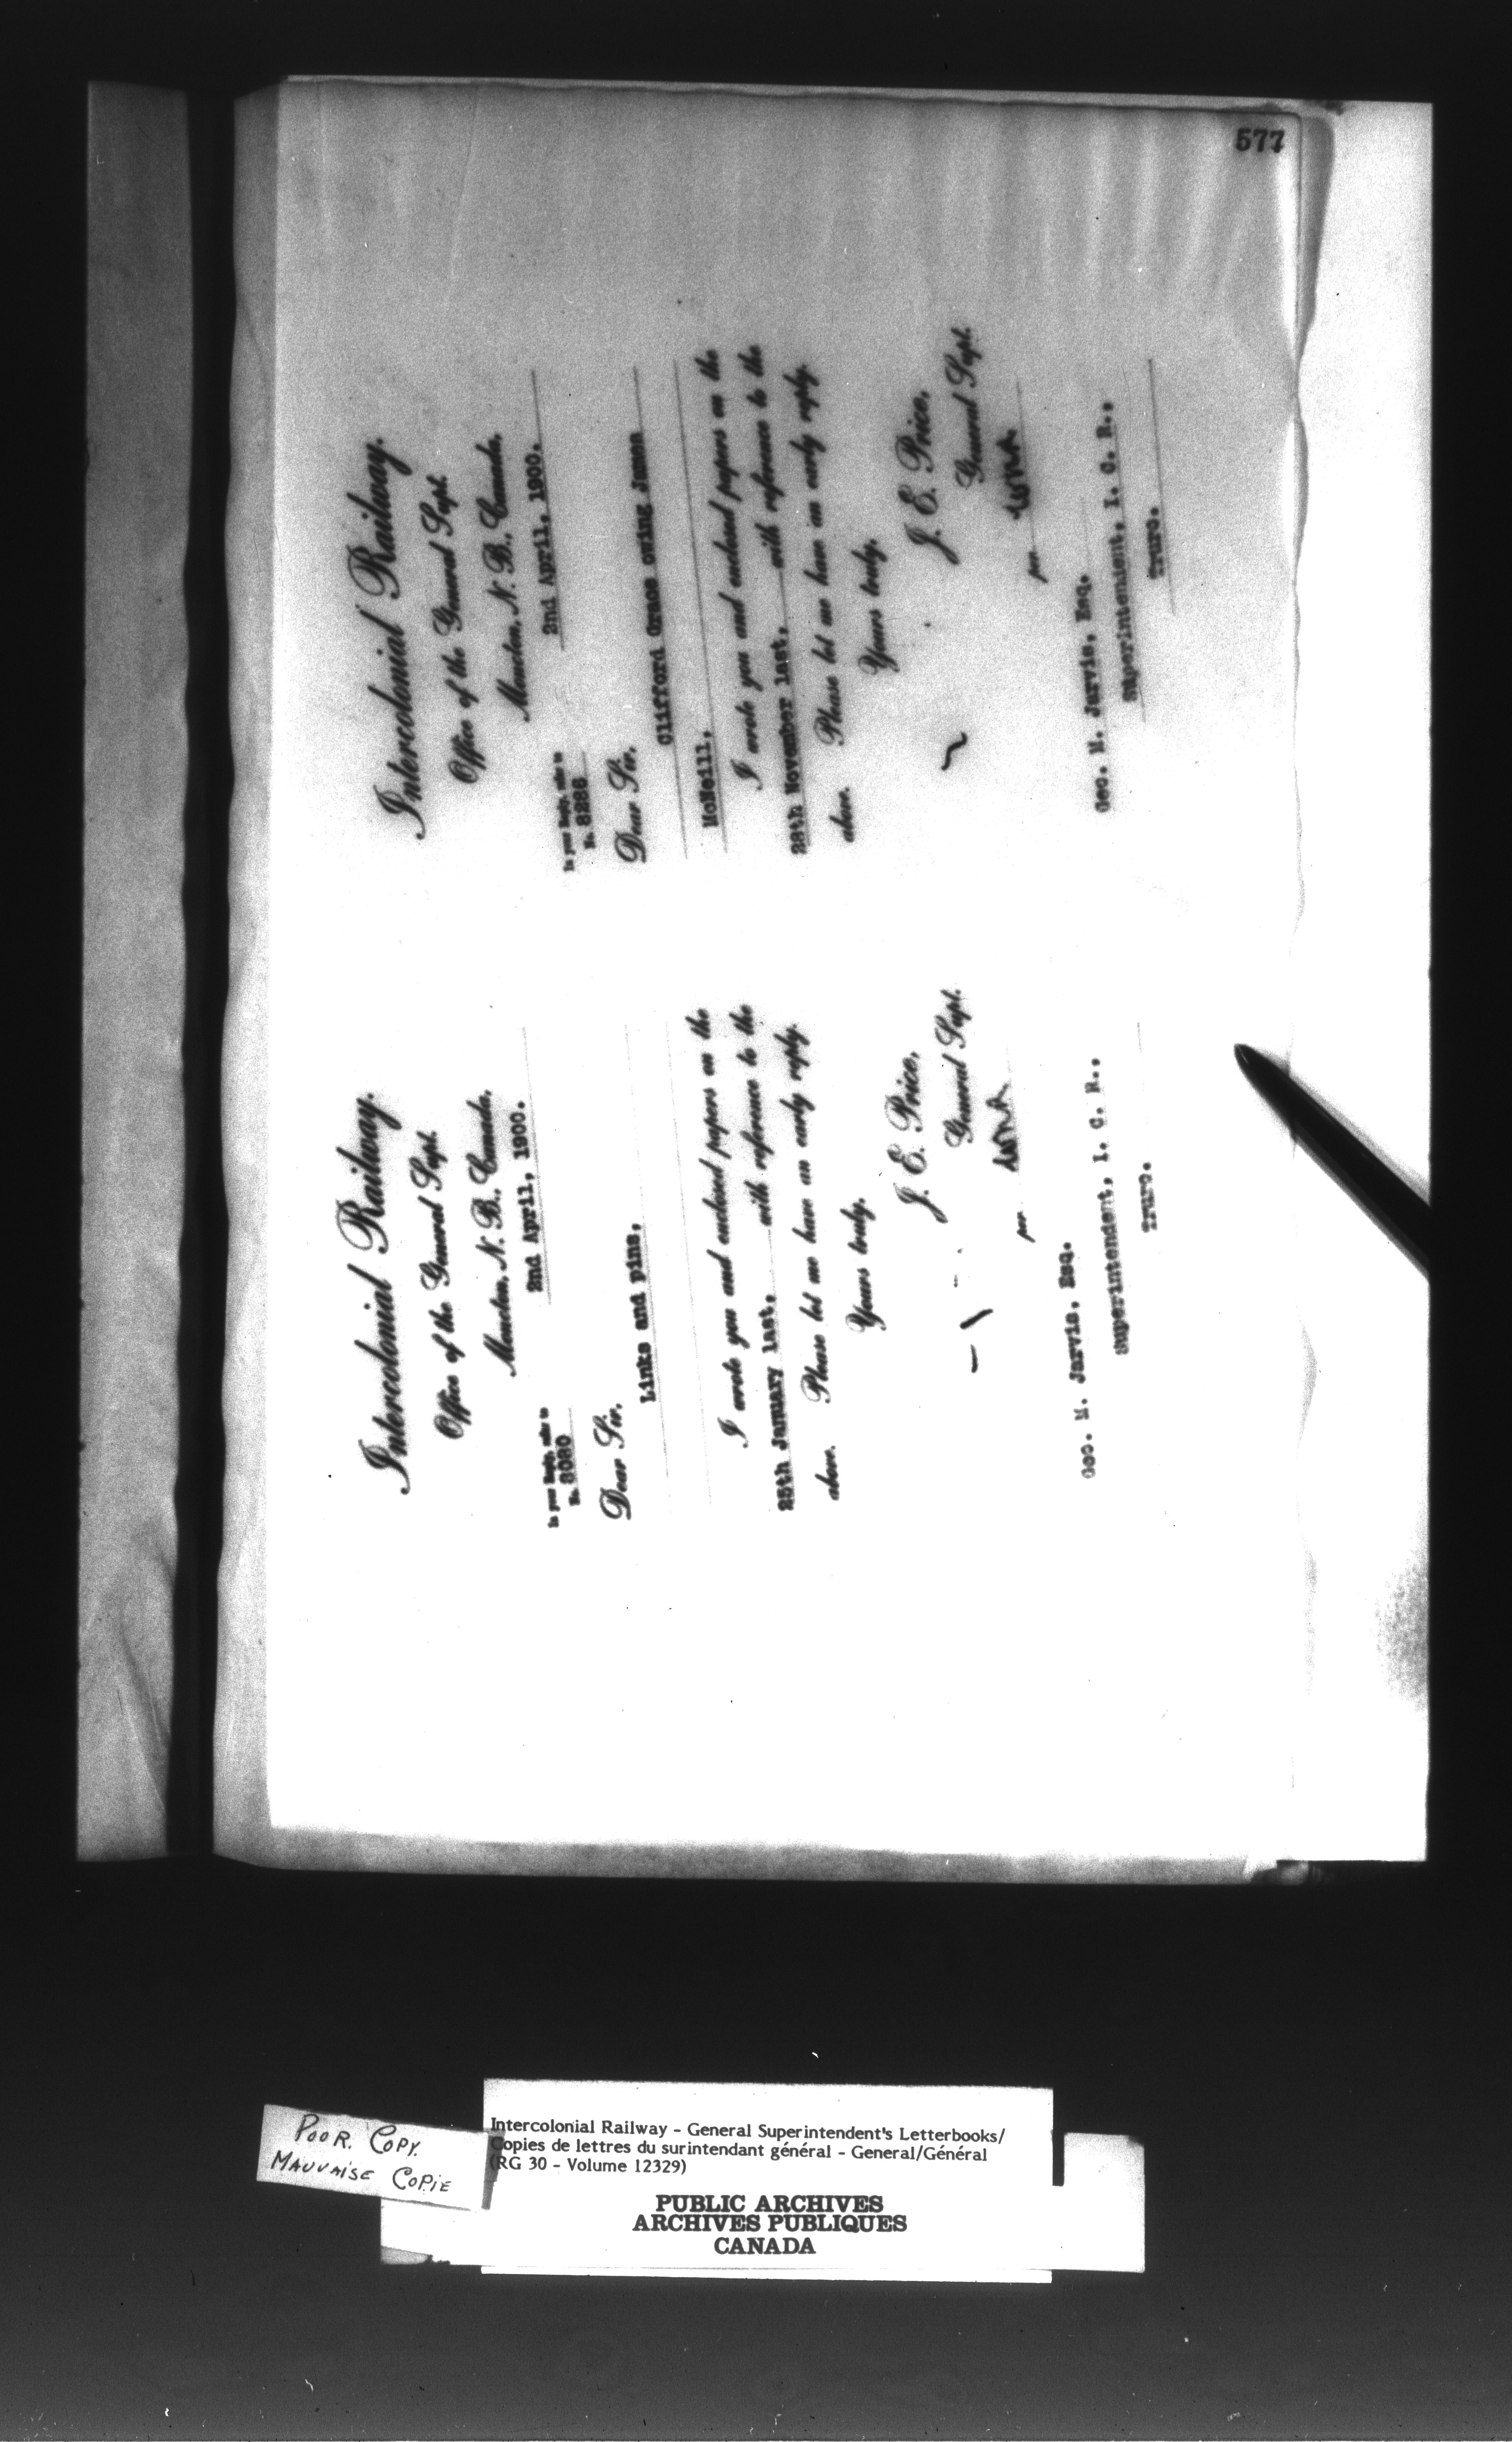 577
Intercolonial Railway.
Office of the General Supt.
Moncton, N. B., Canada,
2nd April, 1900.
In your Reply, refer to
No. 8080
Dear Sir,
Links and pins,
I wrote you and enclosed papers on the
25th January last, with reference to the
above. Please let me have an early reply.
Yours truly,
J. E. Price,
General Supt.
per
Geo. M. Jarvis, Esq.
Superintendent, I. C. R.,
Truro.
Intercolonial Railway.
Office of the General Supt.
Moncton, N. B., Canada,
2nd April, 1900.
In your Reply, refer to
No. 8286
Dear Sir,
Clifford Grace owing James
McNeill,
I wrote you and enclosed papers on the
28th November last, with reference to the
above. Please let me have an early reply.
Yours truly,
J. E. Price,
General Supt.
per
Geo. M. Jarvis, Esq.
Superintendent, I. C. R.,
Truro.
POOR. COPY.
MAUVAISE COPIE
Intercolonial Railway - General Superintendent's Letterbooks/
Copies de lettres du surintendant général - General/Général
(RG 30 - Volume 12329)
PUBLIC ARCHIVES
ARCHIVES PUBLIQUES
CANADA